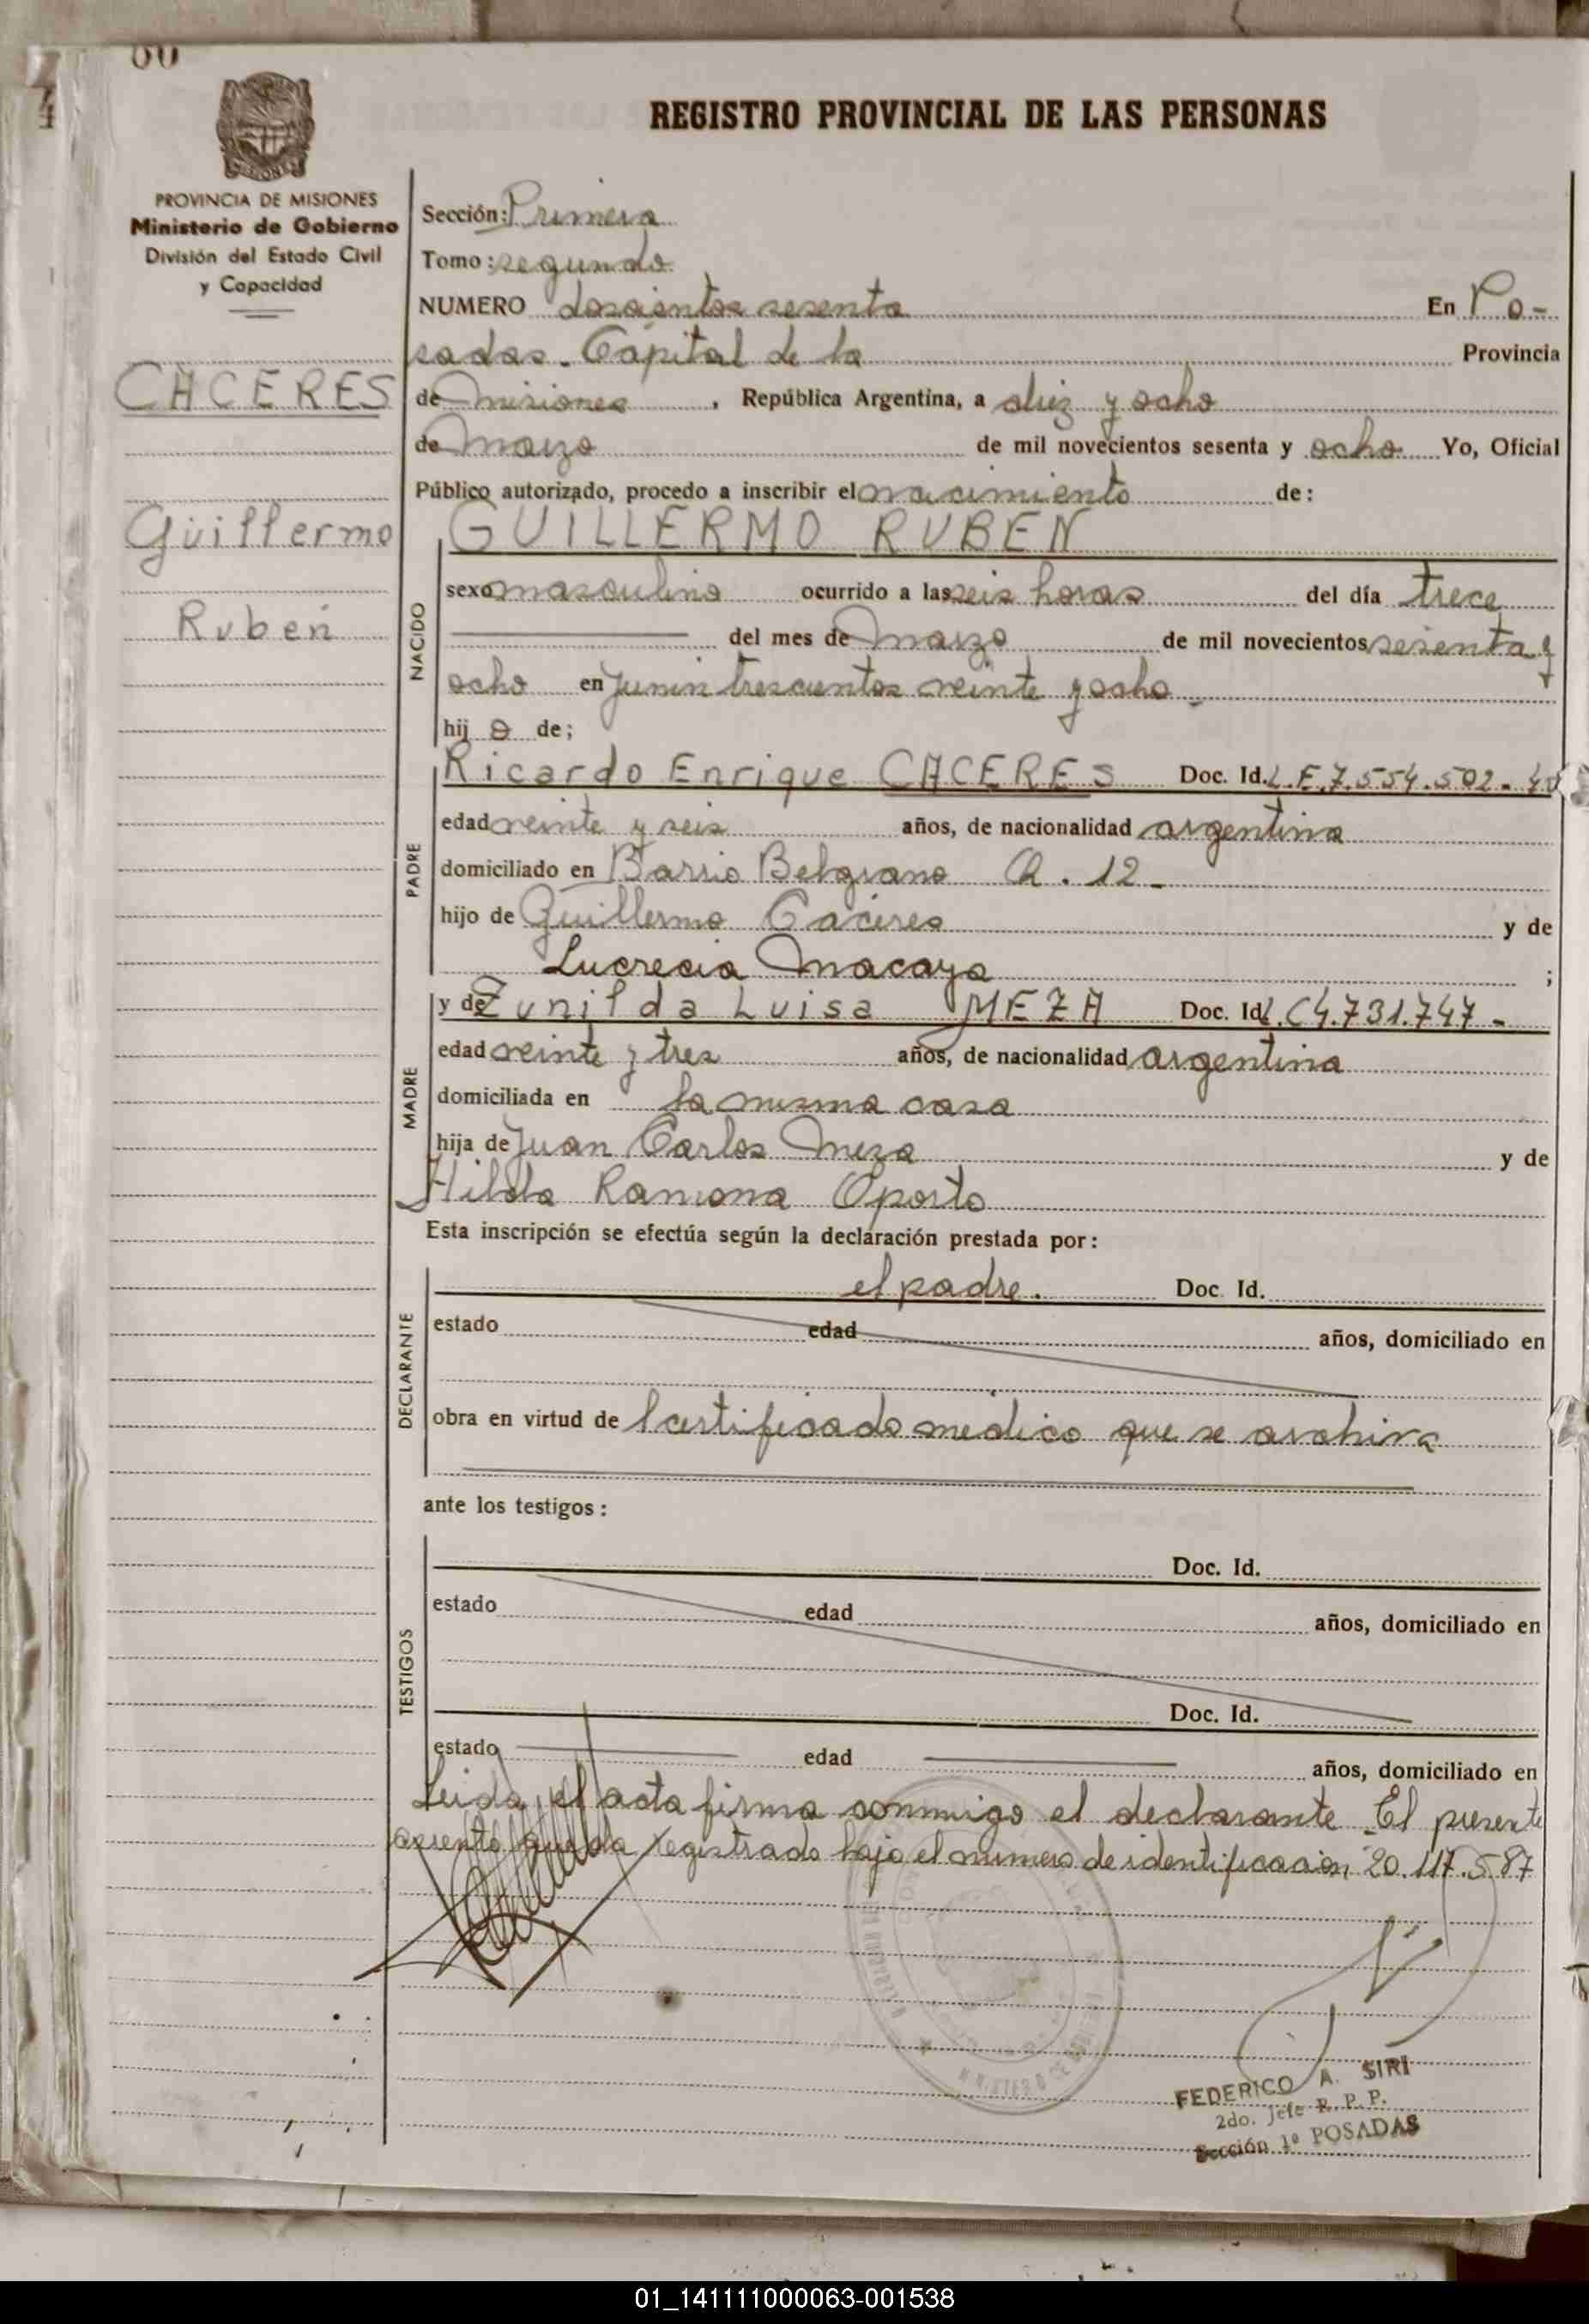 60
REGISTRO PROVINCIAL DE LAS PERSONAS
PROVINCIA DE MISIONES
Ministerio de Gobierno
División del Estado Civil
y Capacidad
CACERES
Guillermo
Ruben
Sección: Primera
Tomo: segundo
NUMERO doscientos sesenta En Po-
sadas. Capital de la Provincia
de misiones, República Argentina, a diez y ocho
de Marzo de mil novecientos sesenta y ocho Yo, Oficial
Público autorizado, procedo a inscribir el nacimiento de:
GUILLERMO RUBEN
NACIDO
sexo masculino ocurrido a las seis horas del día trece
del mes de marzo de mil novecientos sesenta y
ocho en Junin trescientos veinte y ocho
hij o de;
PADRE
Ricardo Enrique CACERES Doc. Id. L.E.7.554.502.
edad veinte y seis años, de nacionalidad argentina
domiciliado en Barrio Belgrano Ch. 12-
hijo de Guillermo Caceres y de
Lucrecia Macaya ;
MADRE
y de Zunilda Luisa MEZA Doc. Id L.C4.731.747-
edad veinte y tres años, de nacionalidad argentina
domiciliada en la misma casa
hija de Juan Carlos Meza y de
Hilda Ramona Oporto
Esta inscripción se efectúa según la declaración prestada por:
DECLARANTE
el padre. Doc. Id.
estado edad años, domiciliado en
obra en virtud de certificado medico que se archiva
ante los testigos:
TESTIGOS
Doc. Id.
estado edad años, domiciliado en
Doc. Id.
estado edad años, domiciliado en
Leida el acta firma conmigo el declarante El presente
asiento queda registrado bajo el numero de identificacion 20.117.587
FEDERICO A. SIRI
2do. Jefe R. P. P.
Sección 1º POSADAS
01_141111000063-001538